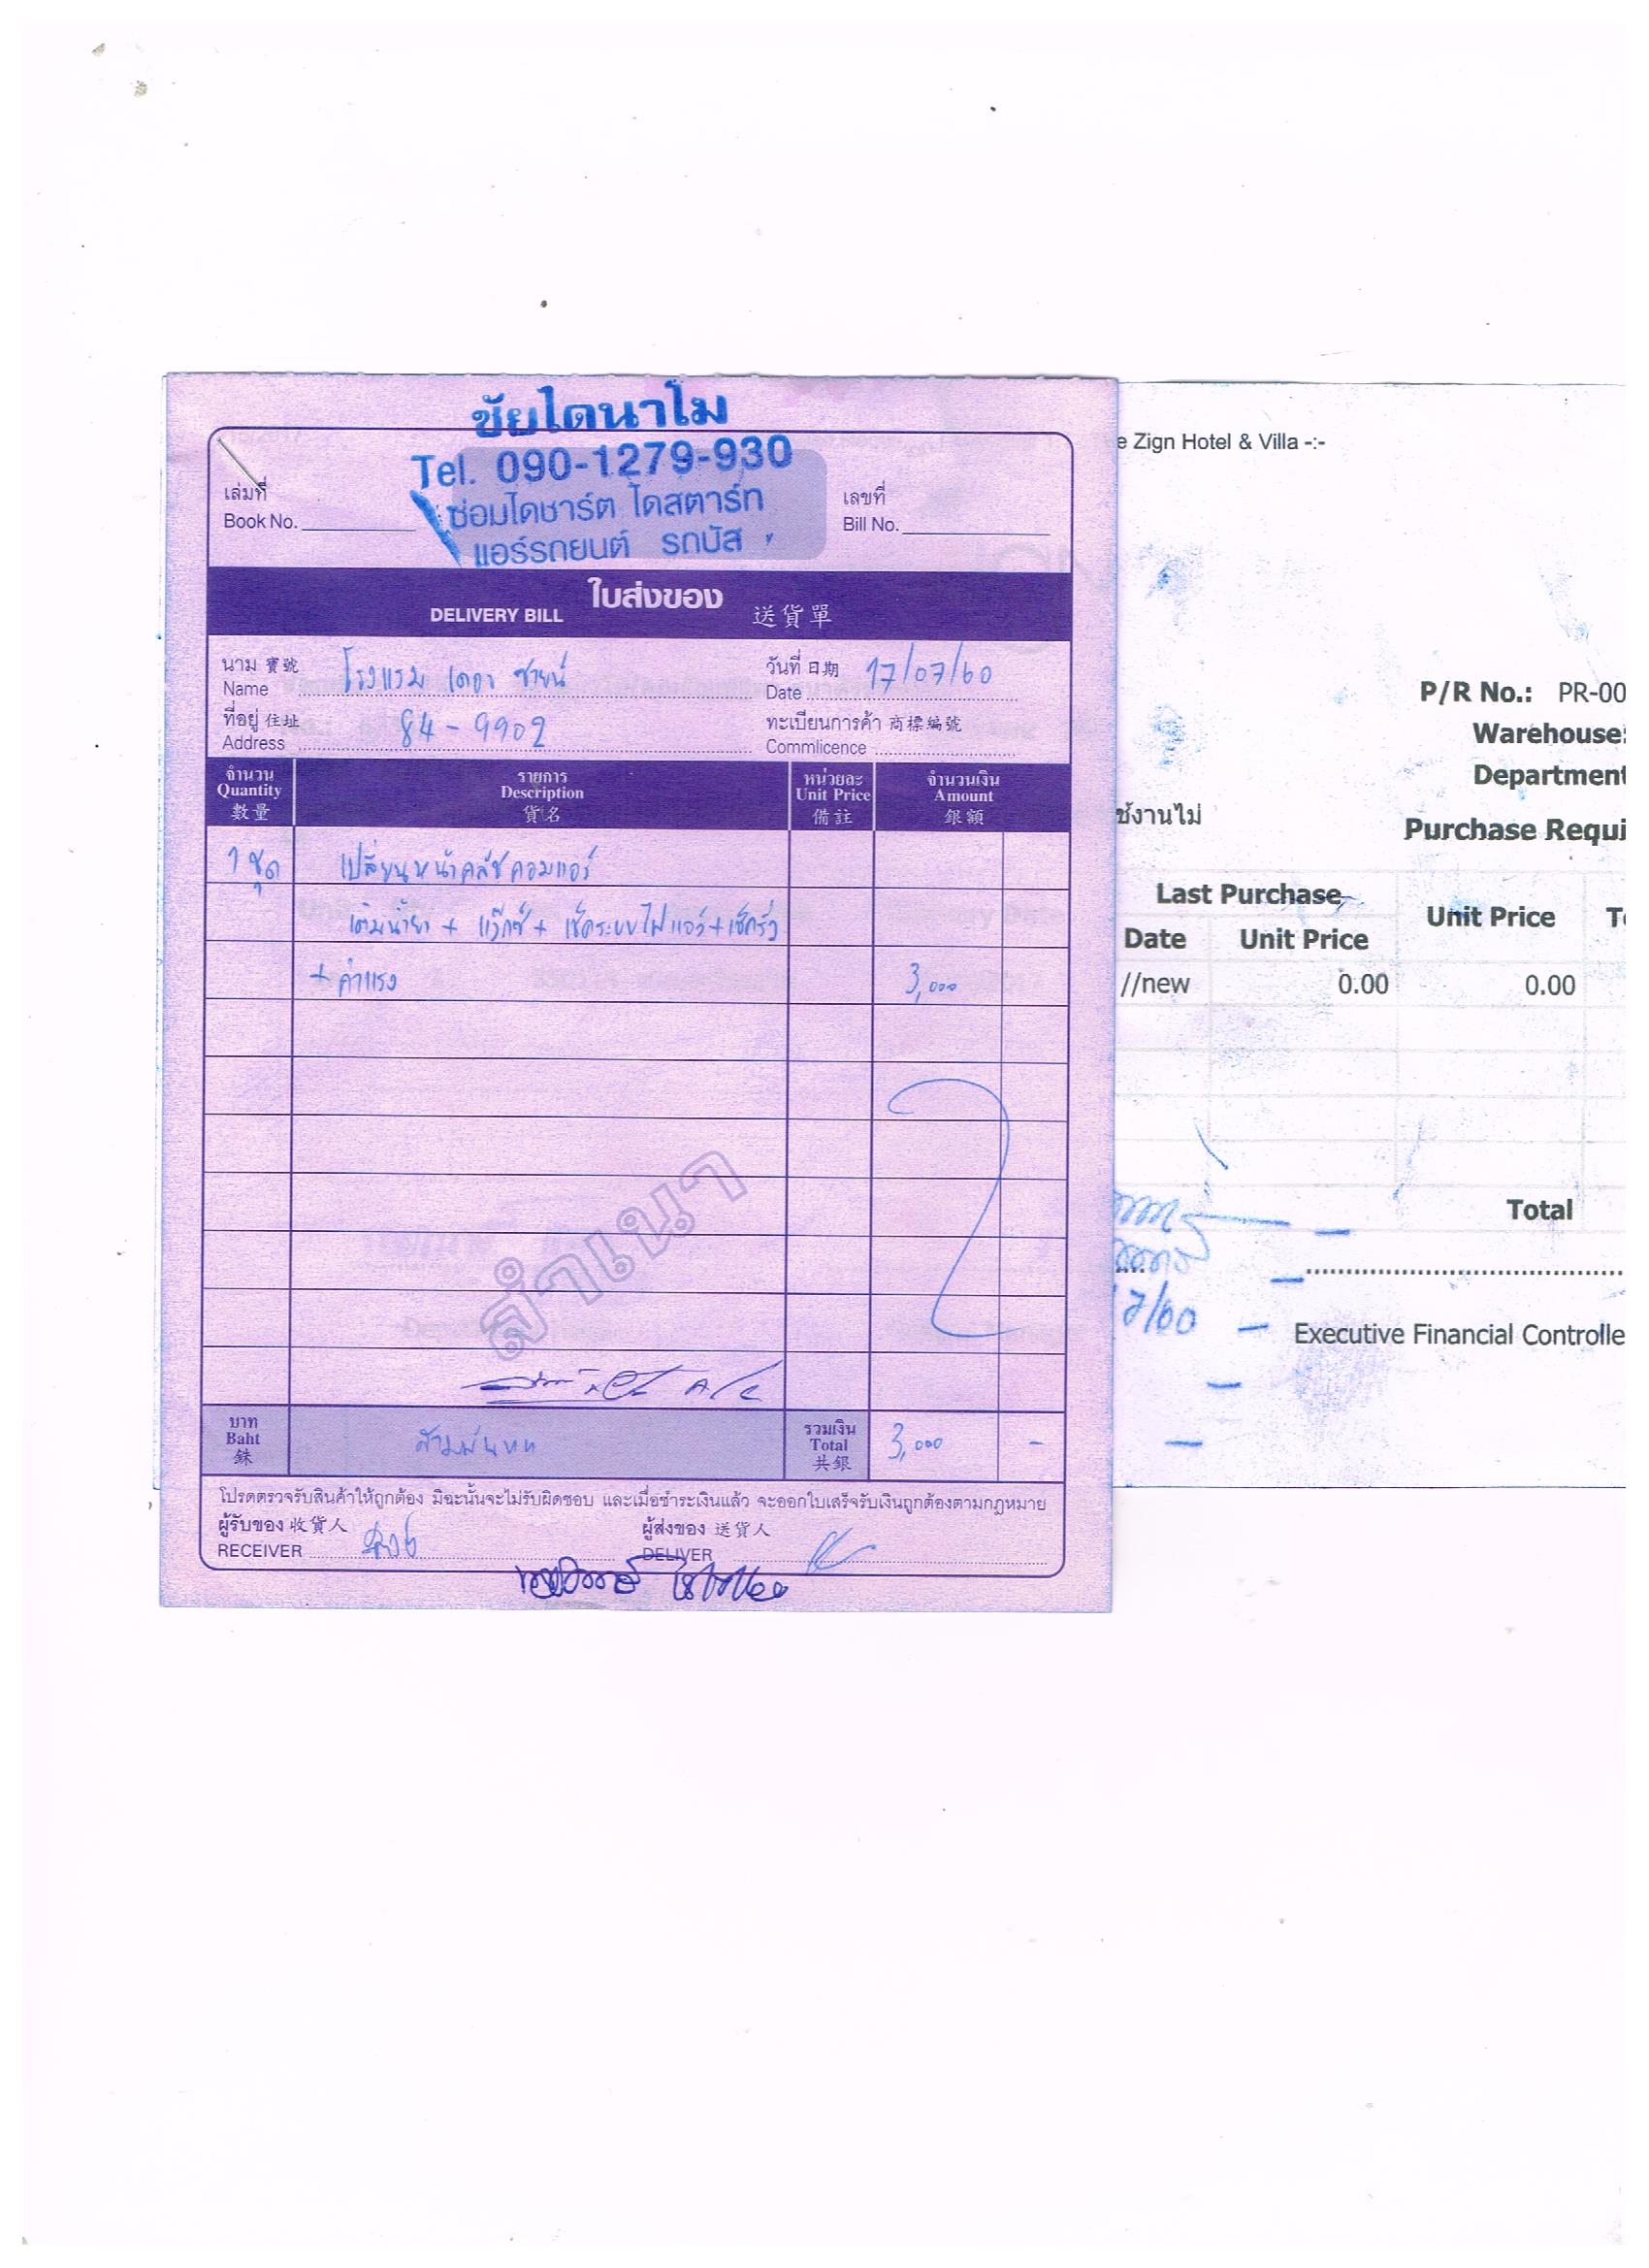 ชัยไดนาโม
Tel. 090-1279-930
ซ่อมไดชาร์ต ไดสตาร์ท
แอร์รถยนต์ รถบัส
เล่มที่
Book No.
เลขที่
Bill No.
DELIVERY BILL ใบส่งของ 送貨單
นาม 寶號
Name โรงแรม เดอะ ซายน์
วันที่ 日期
Date 17/07/60
ที่อยู่ 住址
Address 84-9902
ทะเบียนการค้า 商標編號
Commlicence
จำนวน Quantity 數量
รายการ Description 貨名
หน่วยละ Unit Price 備註
จำนวนเงิน Amount 銀額
1 ชุด เปลี่ยนหน้าคลัชคอมแอร์
เติมน้ำยา + แว๊กซ์ + เช็คระบบไฟแอร์+เช็ครั่ว
+ ค่าแรง 3,000
สำเนา
A/C
บาท Baht 銖 สามพันบาท รวมเงิน Total 共銀 3,000 -
โปรดตรวจรับสินค้าให้ถูกต้อง มิฉะนั้นจะไม่รับผิดชอบ และเมื่อชำระเงินแล้ว จะออกใบเสร็จรับเงินถูกต้องตามกฎหมาย
ผู้รับของ 收貨人
RECEIVER
ผู้ส่งของ 送貨人
DELIVER
e Zign Hotel & Villa -:-
P/R No.: PR-00
Warehouse:
Department
ช้งานไม่
Purchase Requi
Last Purchase
Unit Price
Date Unit Price
//new 0.00 0.00
Total
7/60
Executive Financial Controlle